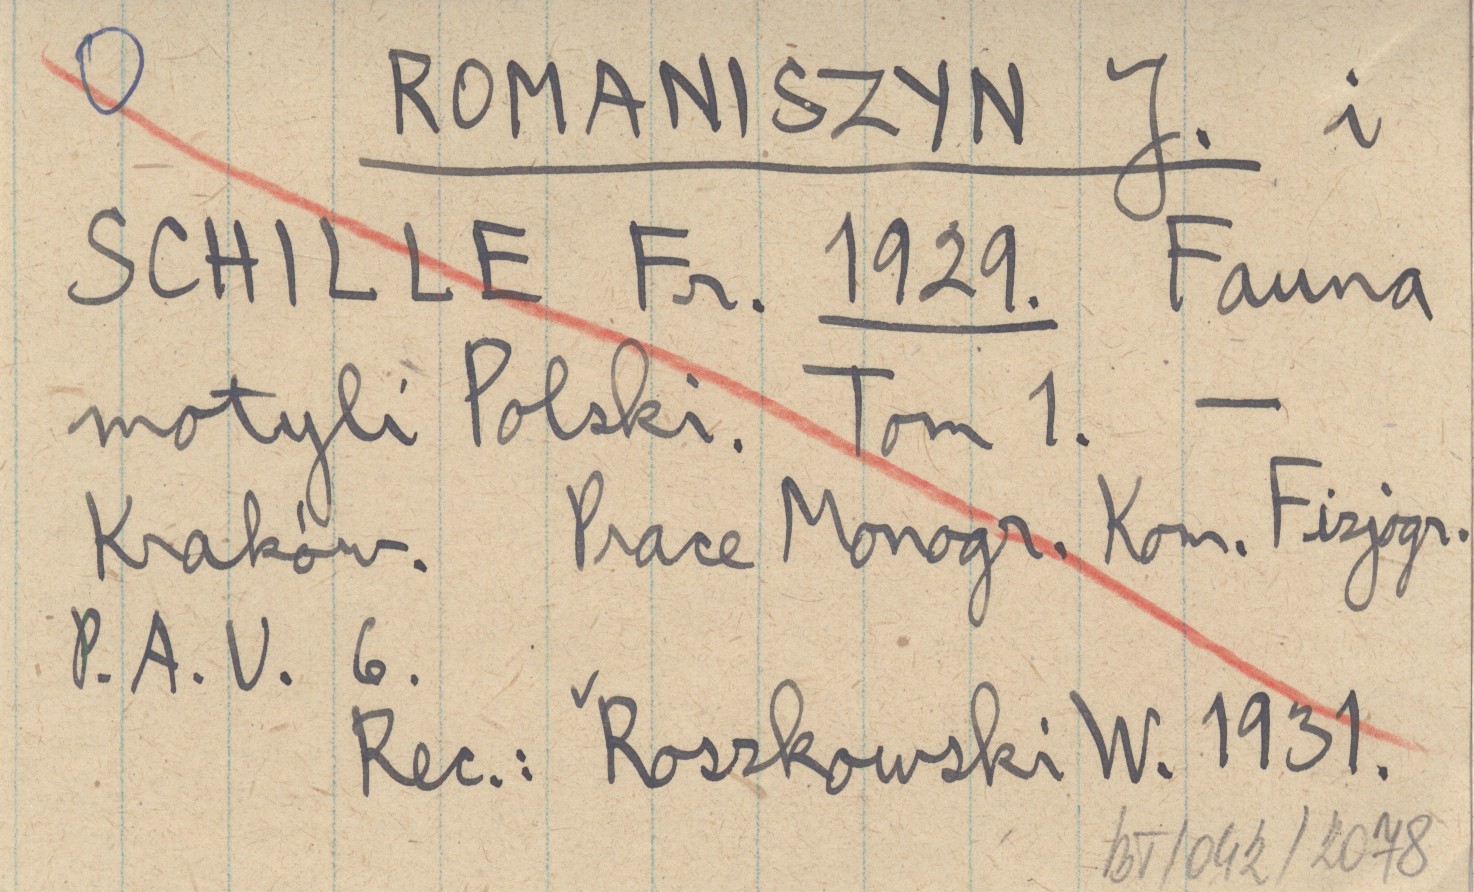 ROMANISZYN J. i
SCHILLE Fr. 1929. Fauna
motyli Polski. Tom 1. —
Kraków. Prace Monogr. Kom. Fizjogr.
P. A. U. 6.
Rec.: Roszkowski W. 1931.
BT/042/2078